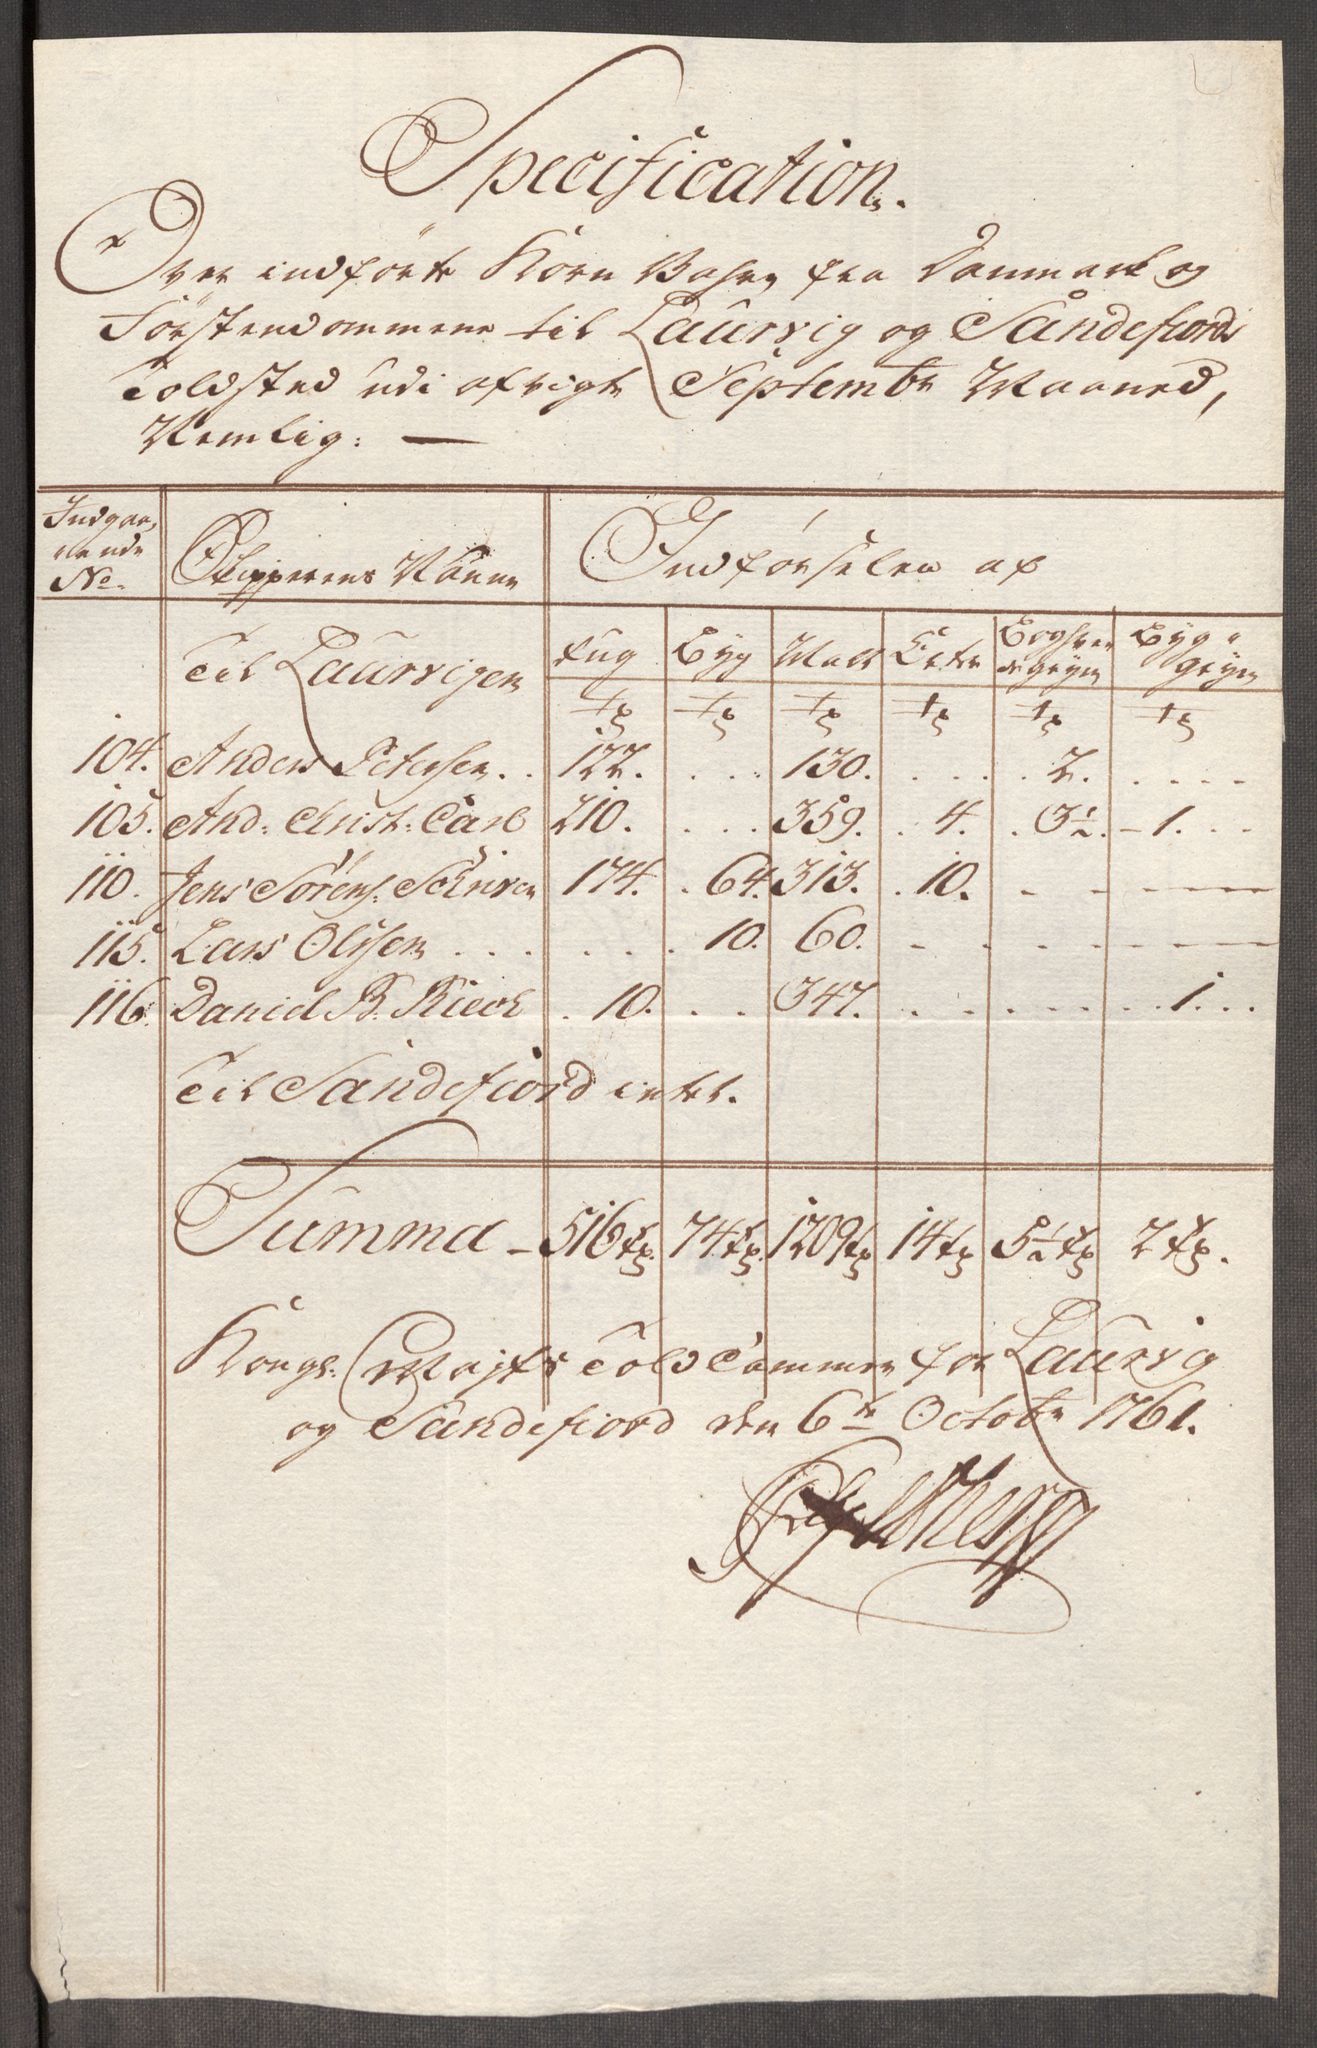 Specification.
Over indförte Korn Vahre fra Danmark og
Förstendommene til Laurvig og Sandefiords
Toldsted udi afvigte Septembr Maaned,
Nemlig: —
Indgaa-
ende
No.
Skipperens Nafne
Indförselen af
Til Laurvigen
Rug
Byg
Malt
Erter
Boghve-
degryn
Byg-
gryn
Tr Tr Tr Tr Tr Tr
104. Anders Petersen . . 122. . . . 130. . . . . 2. . . . .
105. And: Christ: Carl 210. . . . 359. . 4. . 3½. - 1. . .
110. Jens Sörens. Schriver 174. . 64. 313. . 10. . - - - - -
115. Lars Olssen . . . . . . . 10. 60. - - - - - - -
116. Daniel B. Rieck . 10. . . 347. . . . . . . . 1. . .
Til Sandefiord intet.
Summa - 516 Tr. 74 Tr. 1209 Tr 14 Tr 5½ Tr 2 Tr.
Kongl: Majts Told Cammer for Laurvig
og Sandefiord den 6te Octobr 1761.